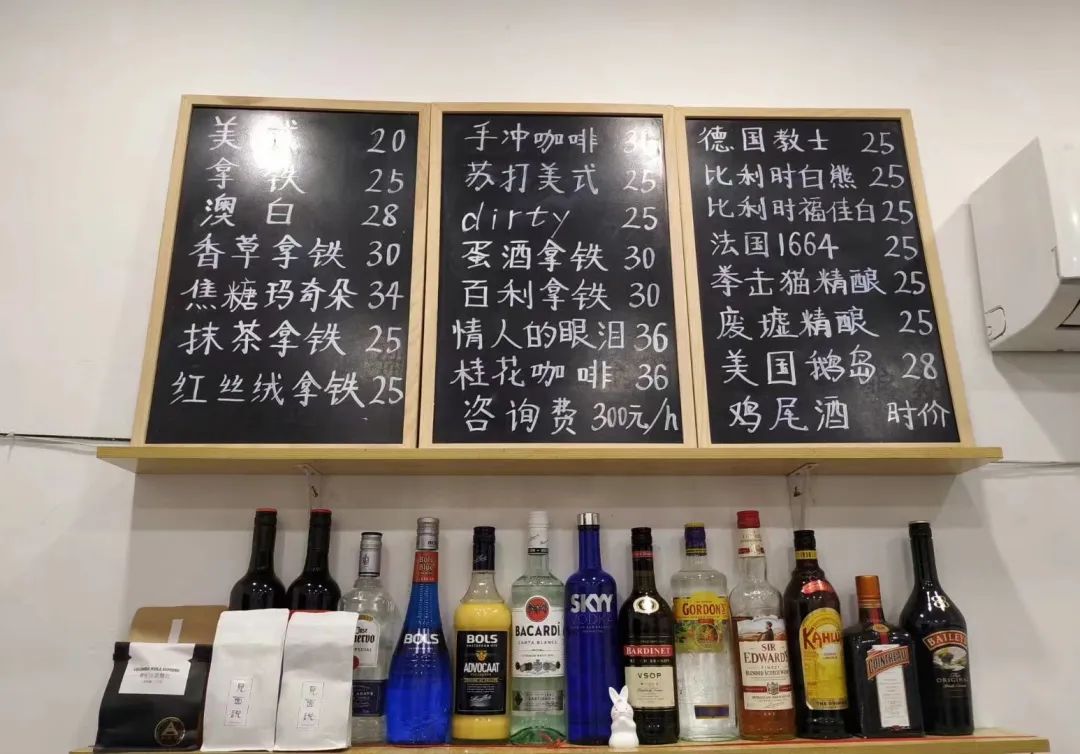 美式 20
拿铁 25
澳白 28
香草拿铁 30
焦糖玛奇朵 34
抹茶拿铁 25
红丝绒拿铁 25
手冲咖啡
苏打美式 25
dirty 25
蛋酒拿铁 30
百利拿铁 30
情人的眼泪 36
桂花咖啡 36
咨询费 300元/h
德国教士 25
比利时白熊 25
比利时福佳白 25
法国1664 25
拳击猫精酿 25
废墟精酿 25
美国鹅岛 28
鸡尾酒 时价
BOLS
BOLS
ADVOCAAT
BACARDÍ
CARTA BLANCA
SKYY
VODKA
BARDINET
VSOP
GORDON'S
SIR
EDWARD'S
BLENDED SCOTCH WHISKY
KAHLÚA
COINTREAU
BAILEYS
THE
ORIGINAL